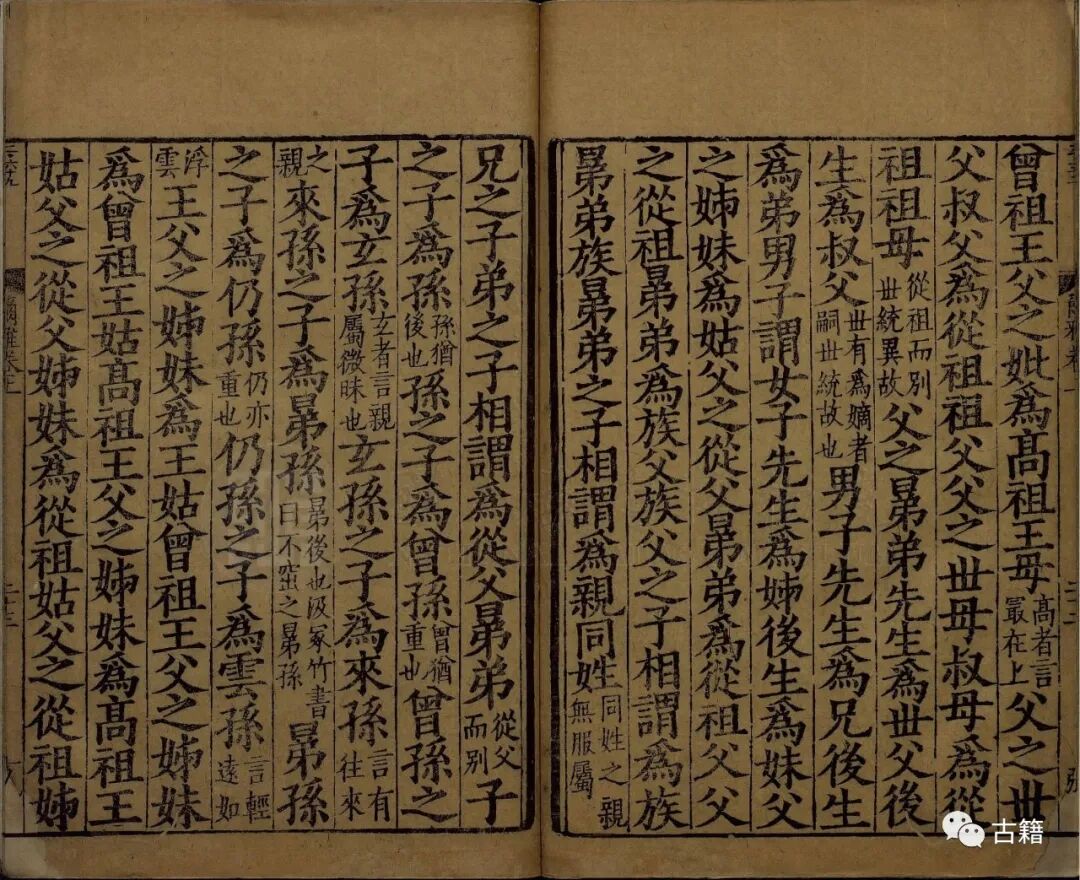 曾祖王父之妣爲髙祖王母髙者言最在上父之丗
父叔父爲從祖祖父父之丗母叔母爲從
祖祖母從祖而别丗統異故父之晜弟先生爲丗父後
生爲叔父丗有爲嫡者嗣丗統故也男子先生爲兄後生
爲弟男子謂女子先生爲姊後生爲妹父
之姊妹爲姑父之從父晜弟爲從祖父父
之從祖晜弟爲族父族父之子相謂爲族
晜弟族晜弟之子相謂爲親同姓同姓之親無服屬
兄之子弟之子相謂爲從父晜弟從父而别子
之子爲孫孫猶後也孫之子爲曾孫曾猶重也曾孫之
子爲玄孫玄者言親屬微昧也玄孫之子爲來孫言有往來
之親來孫之子爲晜孫晜後也汲冢竹書曰不窋之晜孫晜孫
之子爲仍孫仍亦重也仍孫之子爲雲孫言輕遠如
浮雲王父之姊妹爲王姑曾祖王父之姊妹
爲曾祖王姑髙祖王父之姊妹爲髙祖王
姑父之從父姊妹爲從祖姑父之從祖姊
古籍